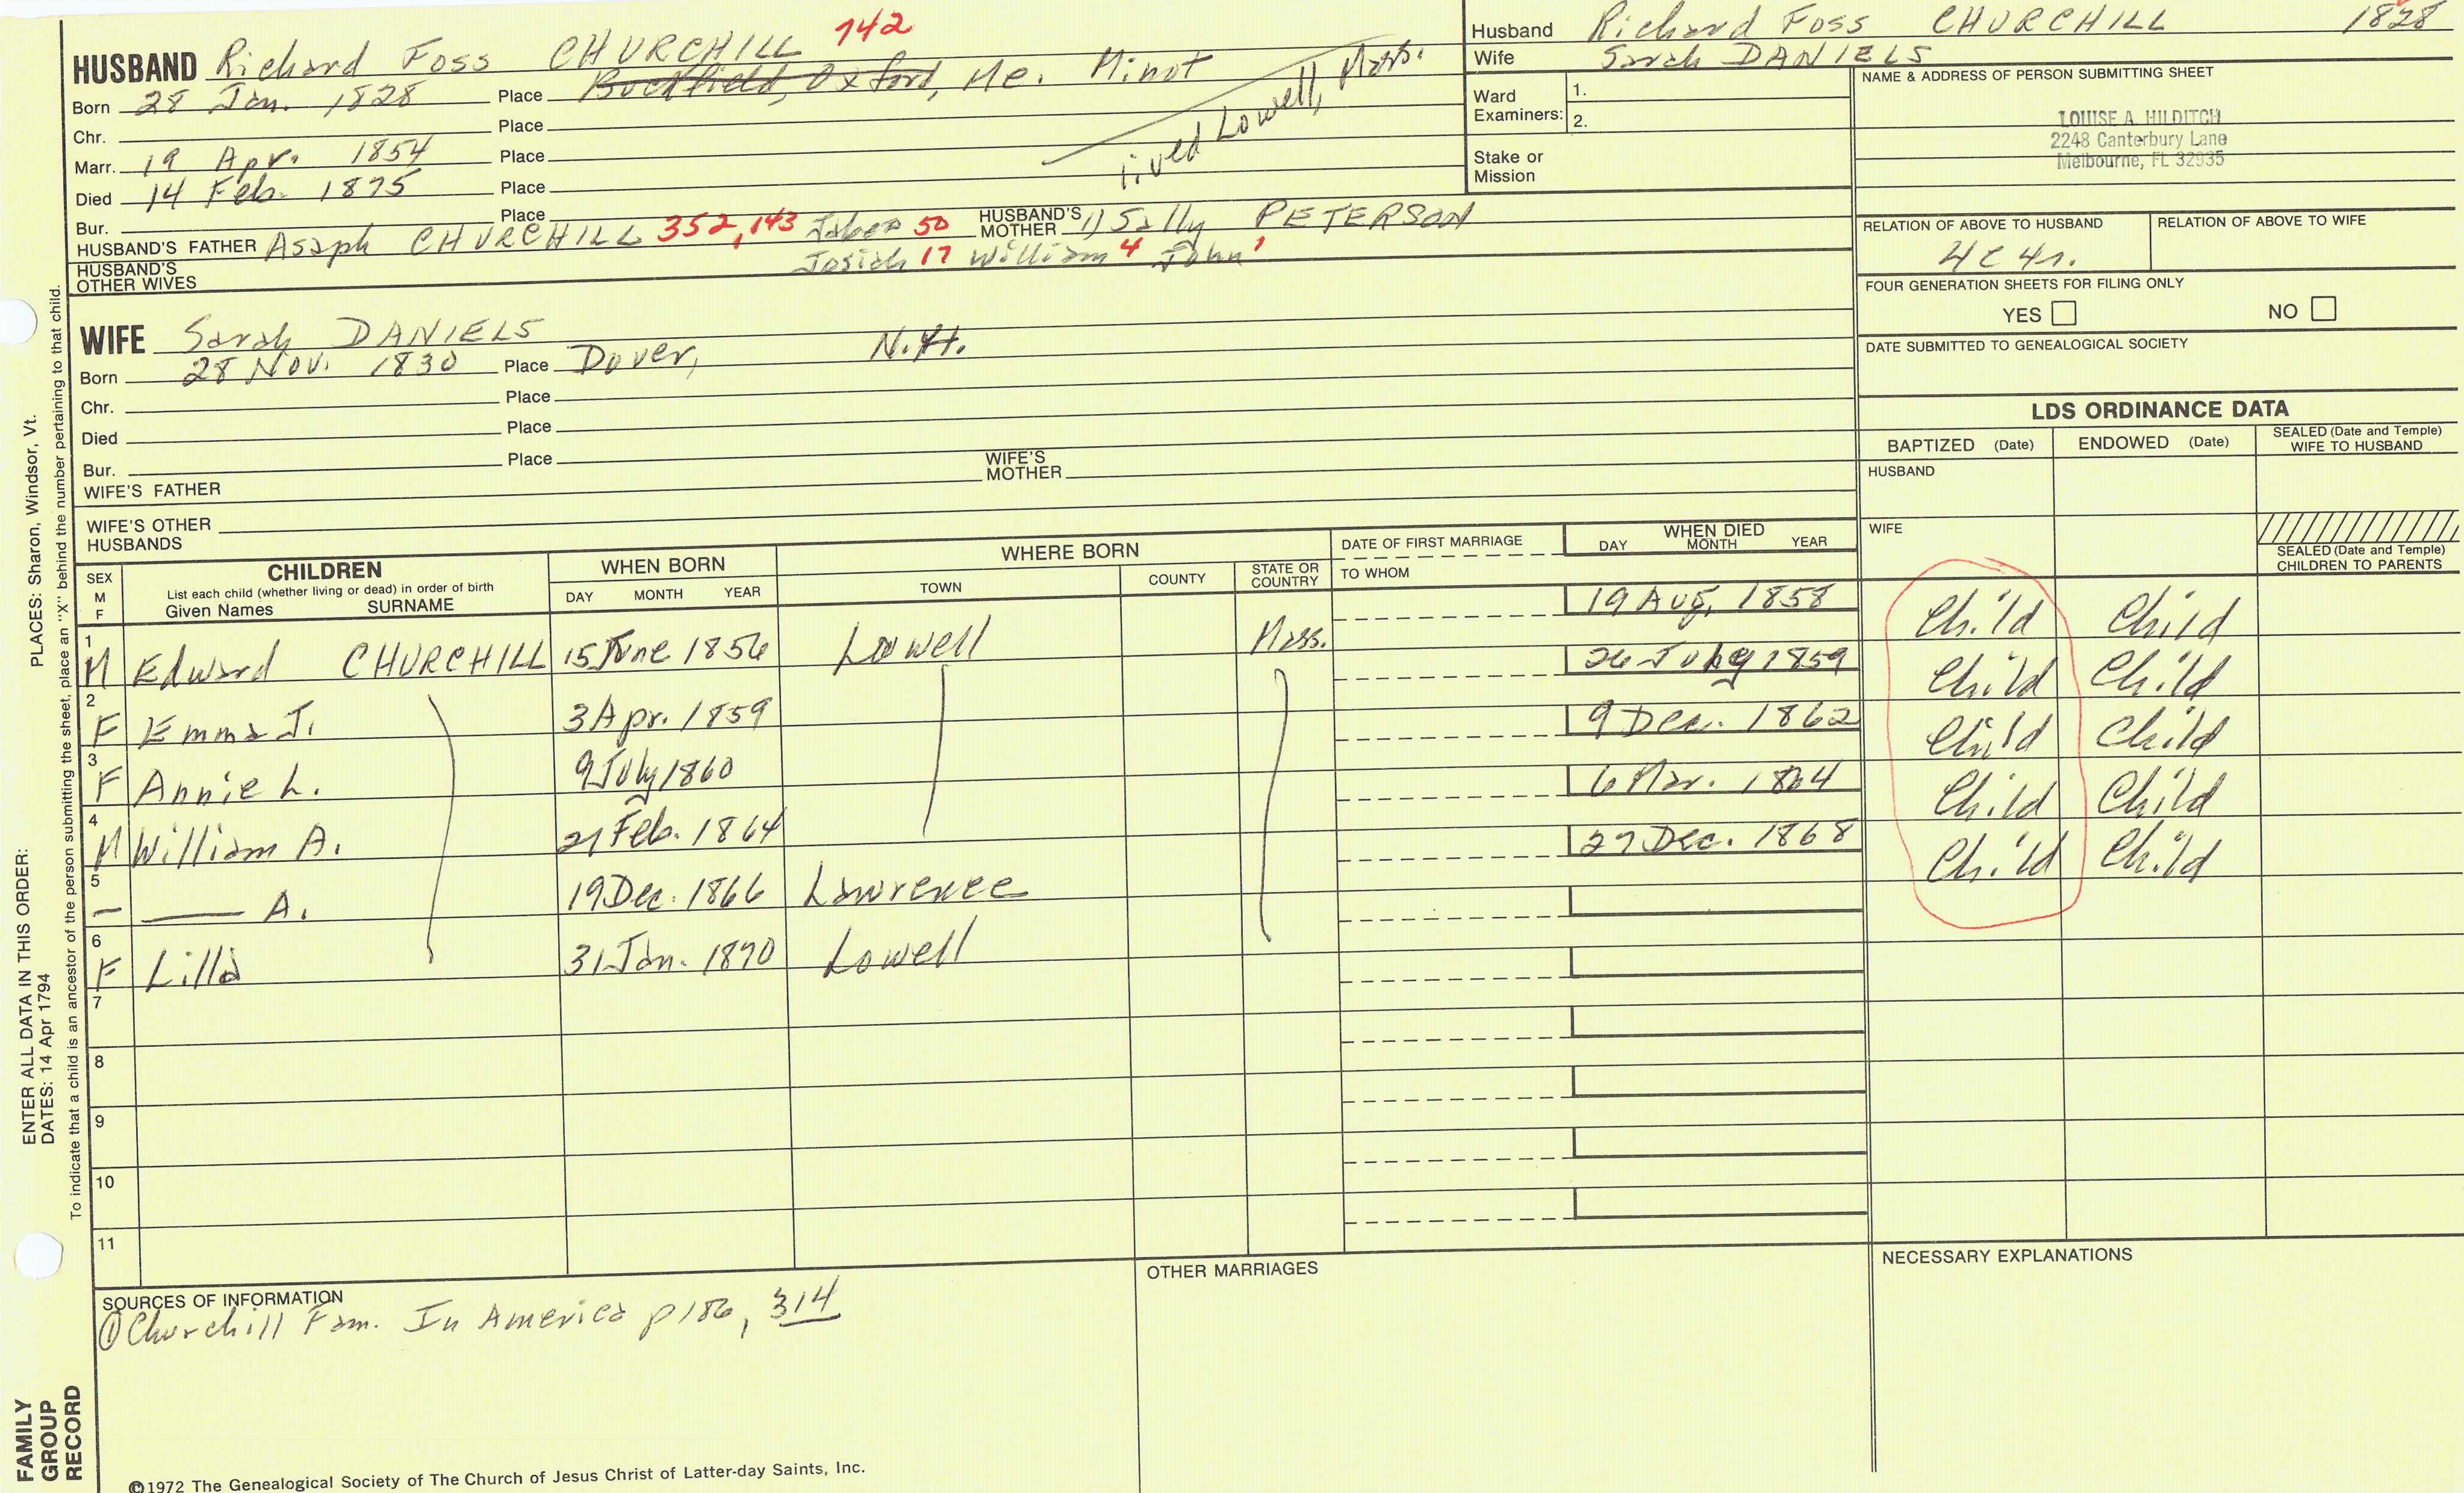 HUSBAND Richard Foss CHURCHILL 142
Born 28 Jan. 1828 Place Buckfield, Oxford, Me. Minot
Chr. Place
Marr. 19 Apr. 1854 Place
Died 14 Feb. 1875 Place
lived Lowell, Mass.
Bur. Place
HUSBAND'S FATHER Asaph CHURCHILL 352,143 Jabez 50 HUSBAND'S MOTHER 1) Sally PETERSON
Josiah 17 William 4 John 1
HUSBAND'S OTHER WIVES
Husband Richard Foss CHURCHILL 1828
Wife Sarah DANIELS
Ward Examiners: 1.
2.
Stake or Mission
NAME & ADDRESS OF PERSON SUBMITTING SHEET
LOUISE A. HILDITCH
2248 Canterbury Lane
Melbourne, FL 32935
RELATION OF ABOVE TO HUSBAND RELATION OF ABOVE TO WIFE
4C4r.
FOUR GENERATION SHEETS FOR FILING ONLY
YES NO
DATE SUBMITTED TO GENEALOGICAL SOCIETY
WIFE Sarah DANIELS
Born 28 Nov. 1830 Place Dover, N.H.
Chr. Place
Died Place
Bur. Place
WIFE'S FATHER WIFE'S MOTHER
WIFE'S OTHER HUSBANDS
LDS ORDINANCE DATA
BAPTIZED (Date) ENDOWED (Date) SEALED (Date and Temple) WIFE TO HUSBAND
HUSBAND
WIFE
SEALED (Date and Temple) CHILDREN TO PARENTS
SEX M F CHILDREN List each child (whether living or dead) in order of birth Given Names SURNAME
WHEN BORN DAY MONTH YEAR
WHERE BORN TOWN COUNTY STATE OR COUNTRY
DATE OF FIRST MARRIAGE TO WHOM
WHEN DIED DAY MONTH YEAR
1 M Edward CHURCHILL 15 June 1856 Lowell Mass. 19 Aug. 1858 Child Child
2 F Emma J. 3 Apr. 1859 26 July 1859 Child Child
3 F Annie L. 9 July 1860 9 Dec. 1862 Child Child
4 M William A. 21 Feb. 1864 6 Mar. 1864 Child Child
5 — — A. 19 Dec. 1866 Lawrence 27 Dec. 1868 Child Child
6 F Lilla 31 Jan. 1870 Lowell
7
8
9
10
11
SOURCES OF INFORMATION
① Churchill Fam. In America p186, 314
OTHER MARRIAGES
NECESSARY EXPLANATIONS
©1972 The Genealogical Society of The Church of Jesus Christ of Latter-day Saints, Inc.
FAMILY GROUP RECORD
ENTER ALL DATA IN THIS ORDER: PLACES: Sharon, Windsor, Vt.
DATES: 14 Apr 1794
To indicate that a child is an ancestor of the person submitting the sheet, place an "X" behind the number pertaining to that child.